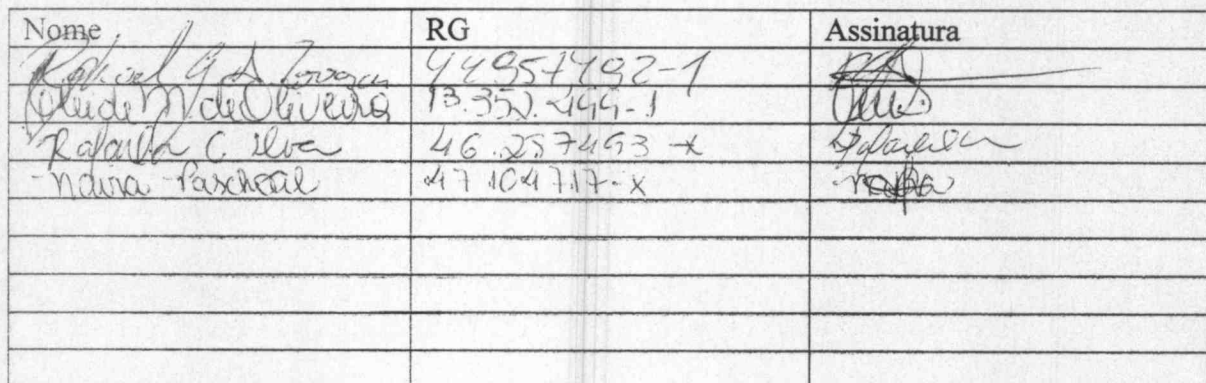 Nome RG Assinatura
Raphael G A 44957492-1
Cleide M. de Oliveira 13.352.499-1
Rafaella C. Silva 46.257493-x Rafaella
Naina Paschoal 47.104717-x